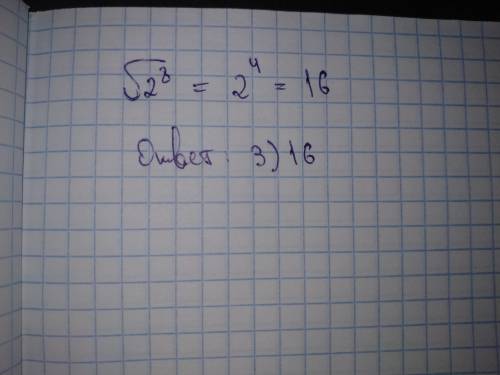 √2⁸ = 2⁴ = 16
Ответ: 3) 16